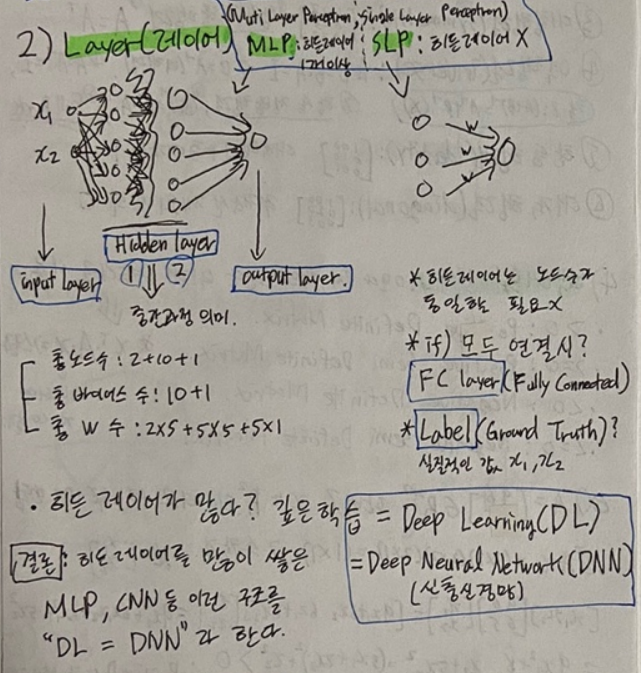 (Muti Layer Perceptron, Single Layer Perceptron)
2) Layer(레이어) MLP: 히든레이어 1개이상 ; SLP: 히든레이어 X
x₁
x₂
w
w
w
Hidden layer
① ②
input layer
output layer.
중간과정 의미.
* 히든레이어는 노드수가
동일할 필요X
* if) 모두 연결시?
FC layer (Fully Connected)
* Label (Ground Truth)?
실질적인 값 x₁, x₂
총 노드수 : 2+10+1
총 바이어스 수 : 10+1
총 W 수 : 2x5 + 5x5 + 5x1
• 히든 레이어가 많다? 깊은 학습 = Deep Learning(DL)
= Deep Neural Network(DNN)
(심층신경망)
결론 : 히든 레이어를 많이 쌓은
MLP, CNN 등 이런 구조를
"DL = DNN" 라 한다.